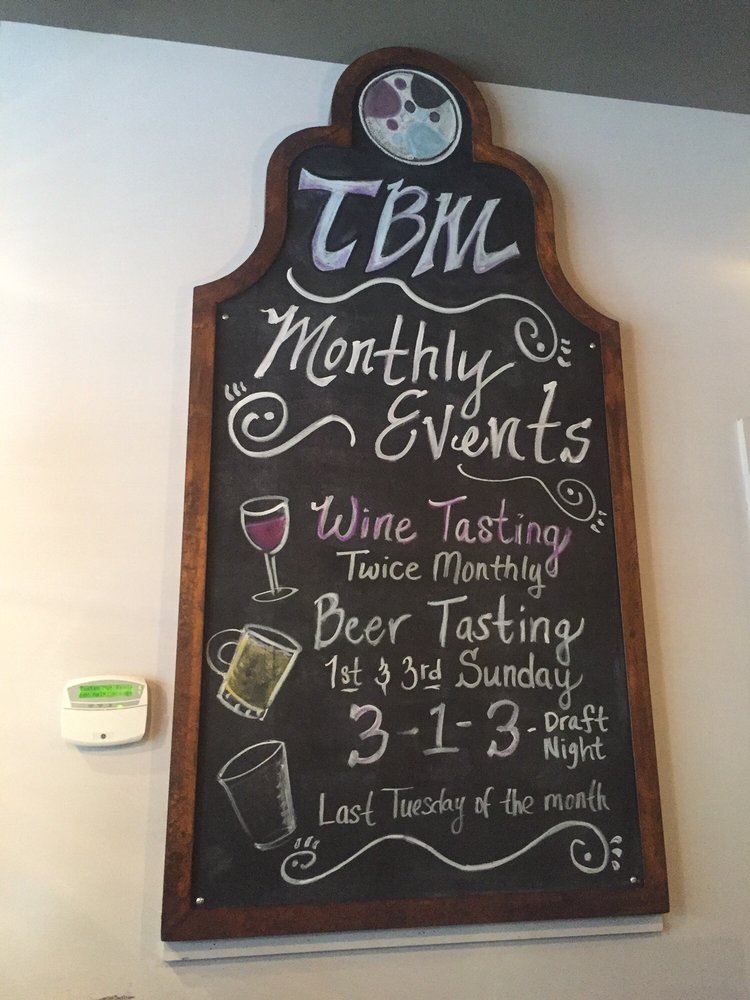 TBM
Monthly
Events
Wine Tasting
Twice Monthly
Beer Tasting
1st & 3rd Sunday
3-1-3- Draft Night
Last Tuesday of the month